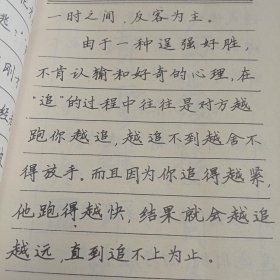 一时之间，反客为主。
由于一种逞强好胜，
不肯认输和好奇的心理，在
“追”的过程中往往是对方越
跑你越追，越追不到越舍不
得放手。而且因为你追得越紧，
他跑得越快，结果就会越追
越远，直到追不上为止。